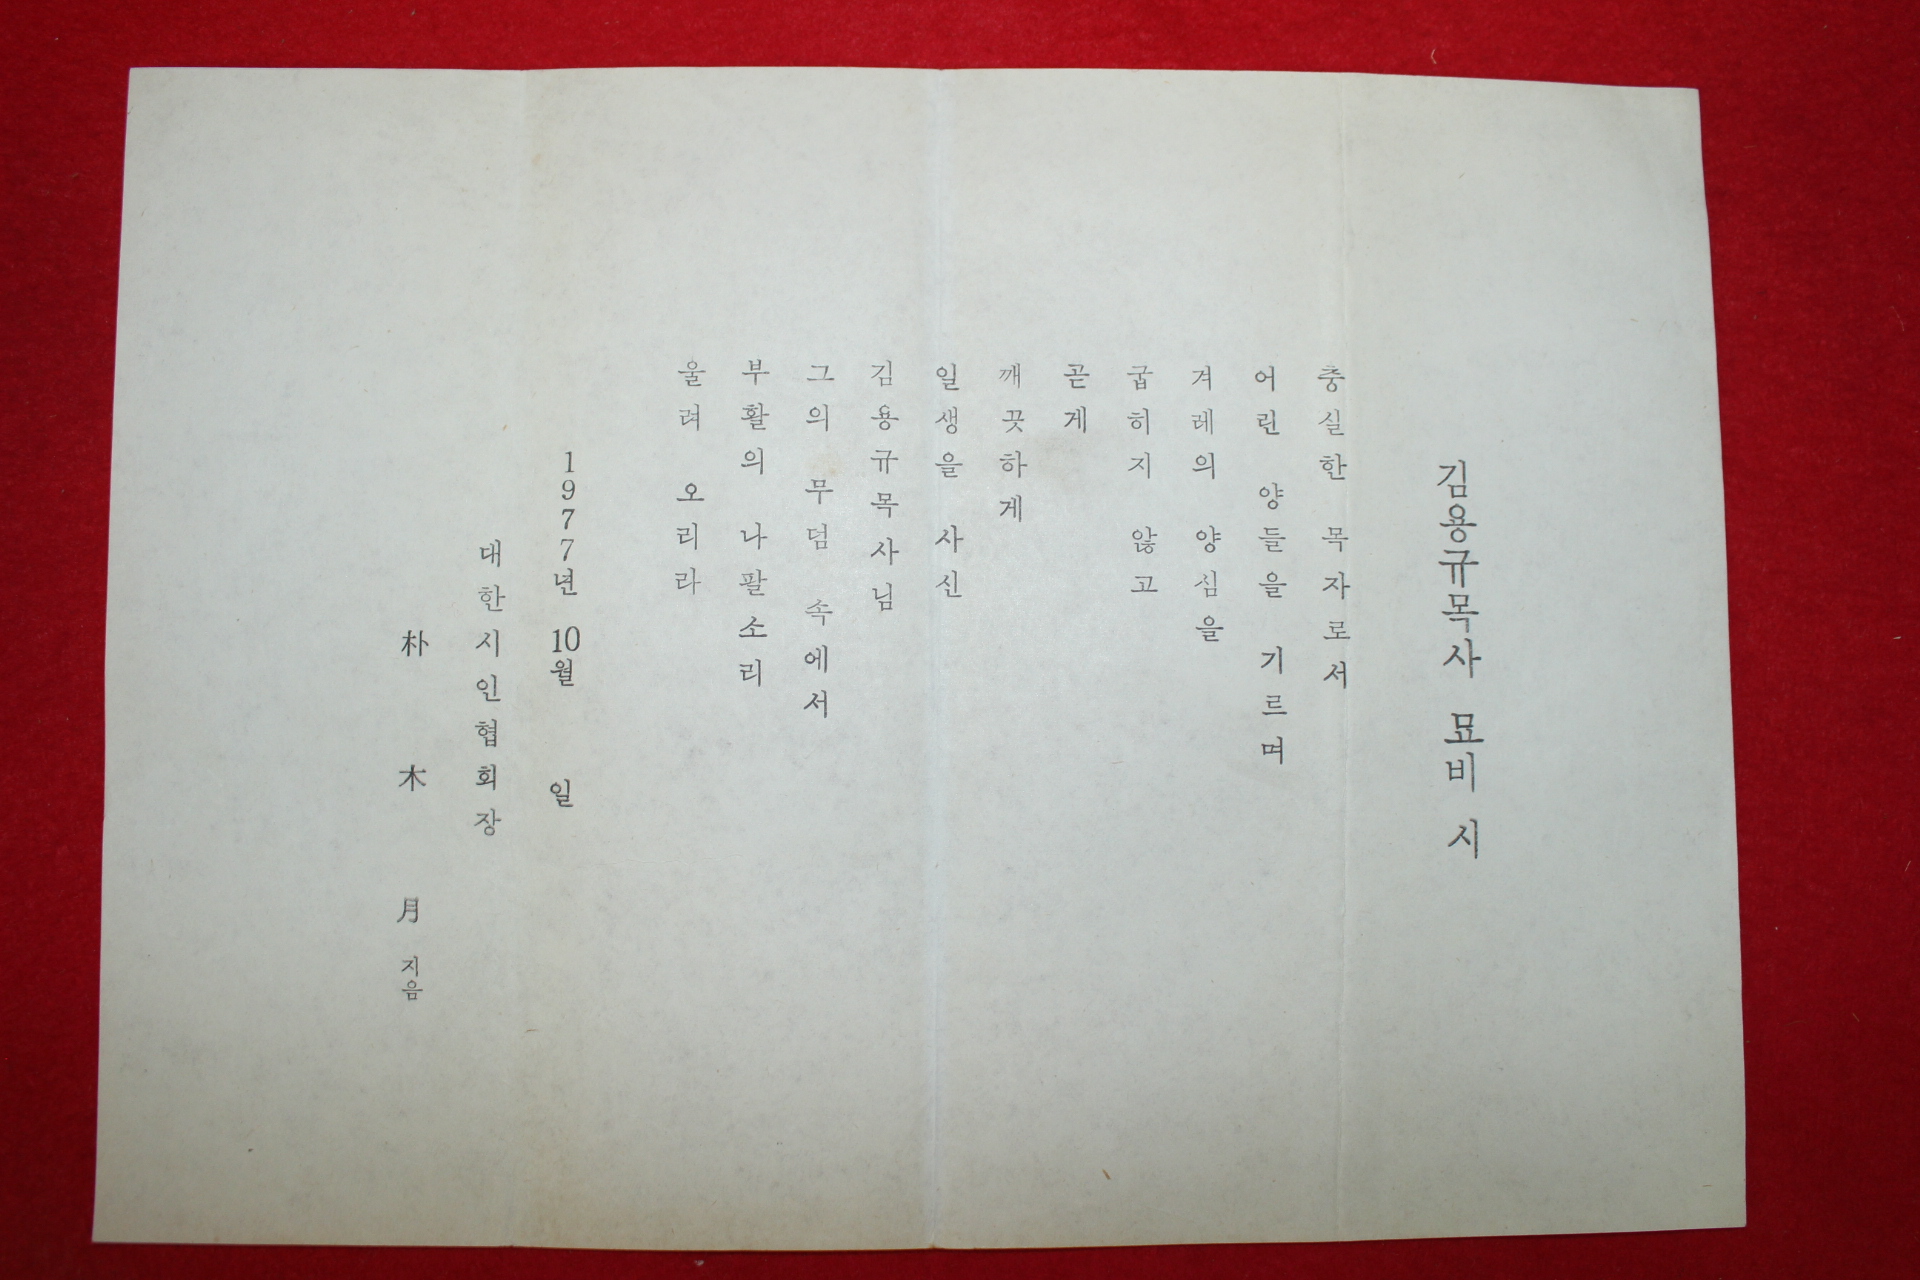 김용규목사 묘비 시
충실한 목자로서
어린 양들을 기르며
겨레의 양심을
굽히지 않고
곧게
깨끗하게
일생을 사신
김용규목사님
그의 무덤 속에서
부활의 나팔소리
울려 오리라
1977년 10월 일
대한시인협회장
朴木月 지음